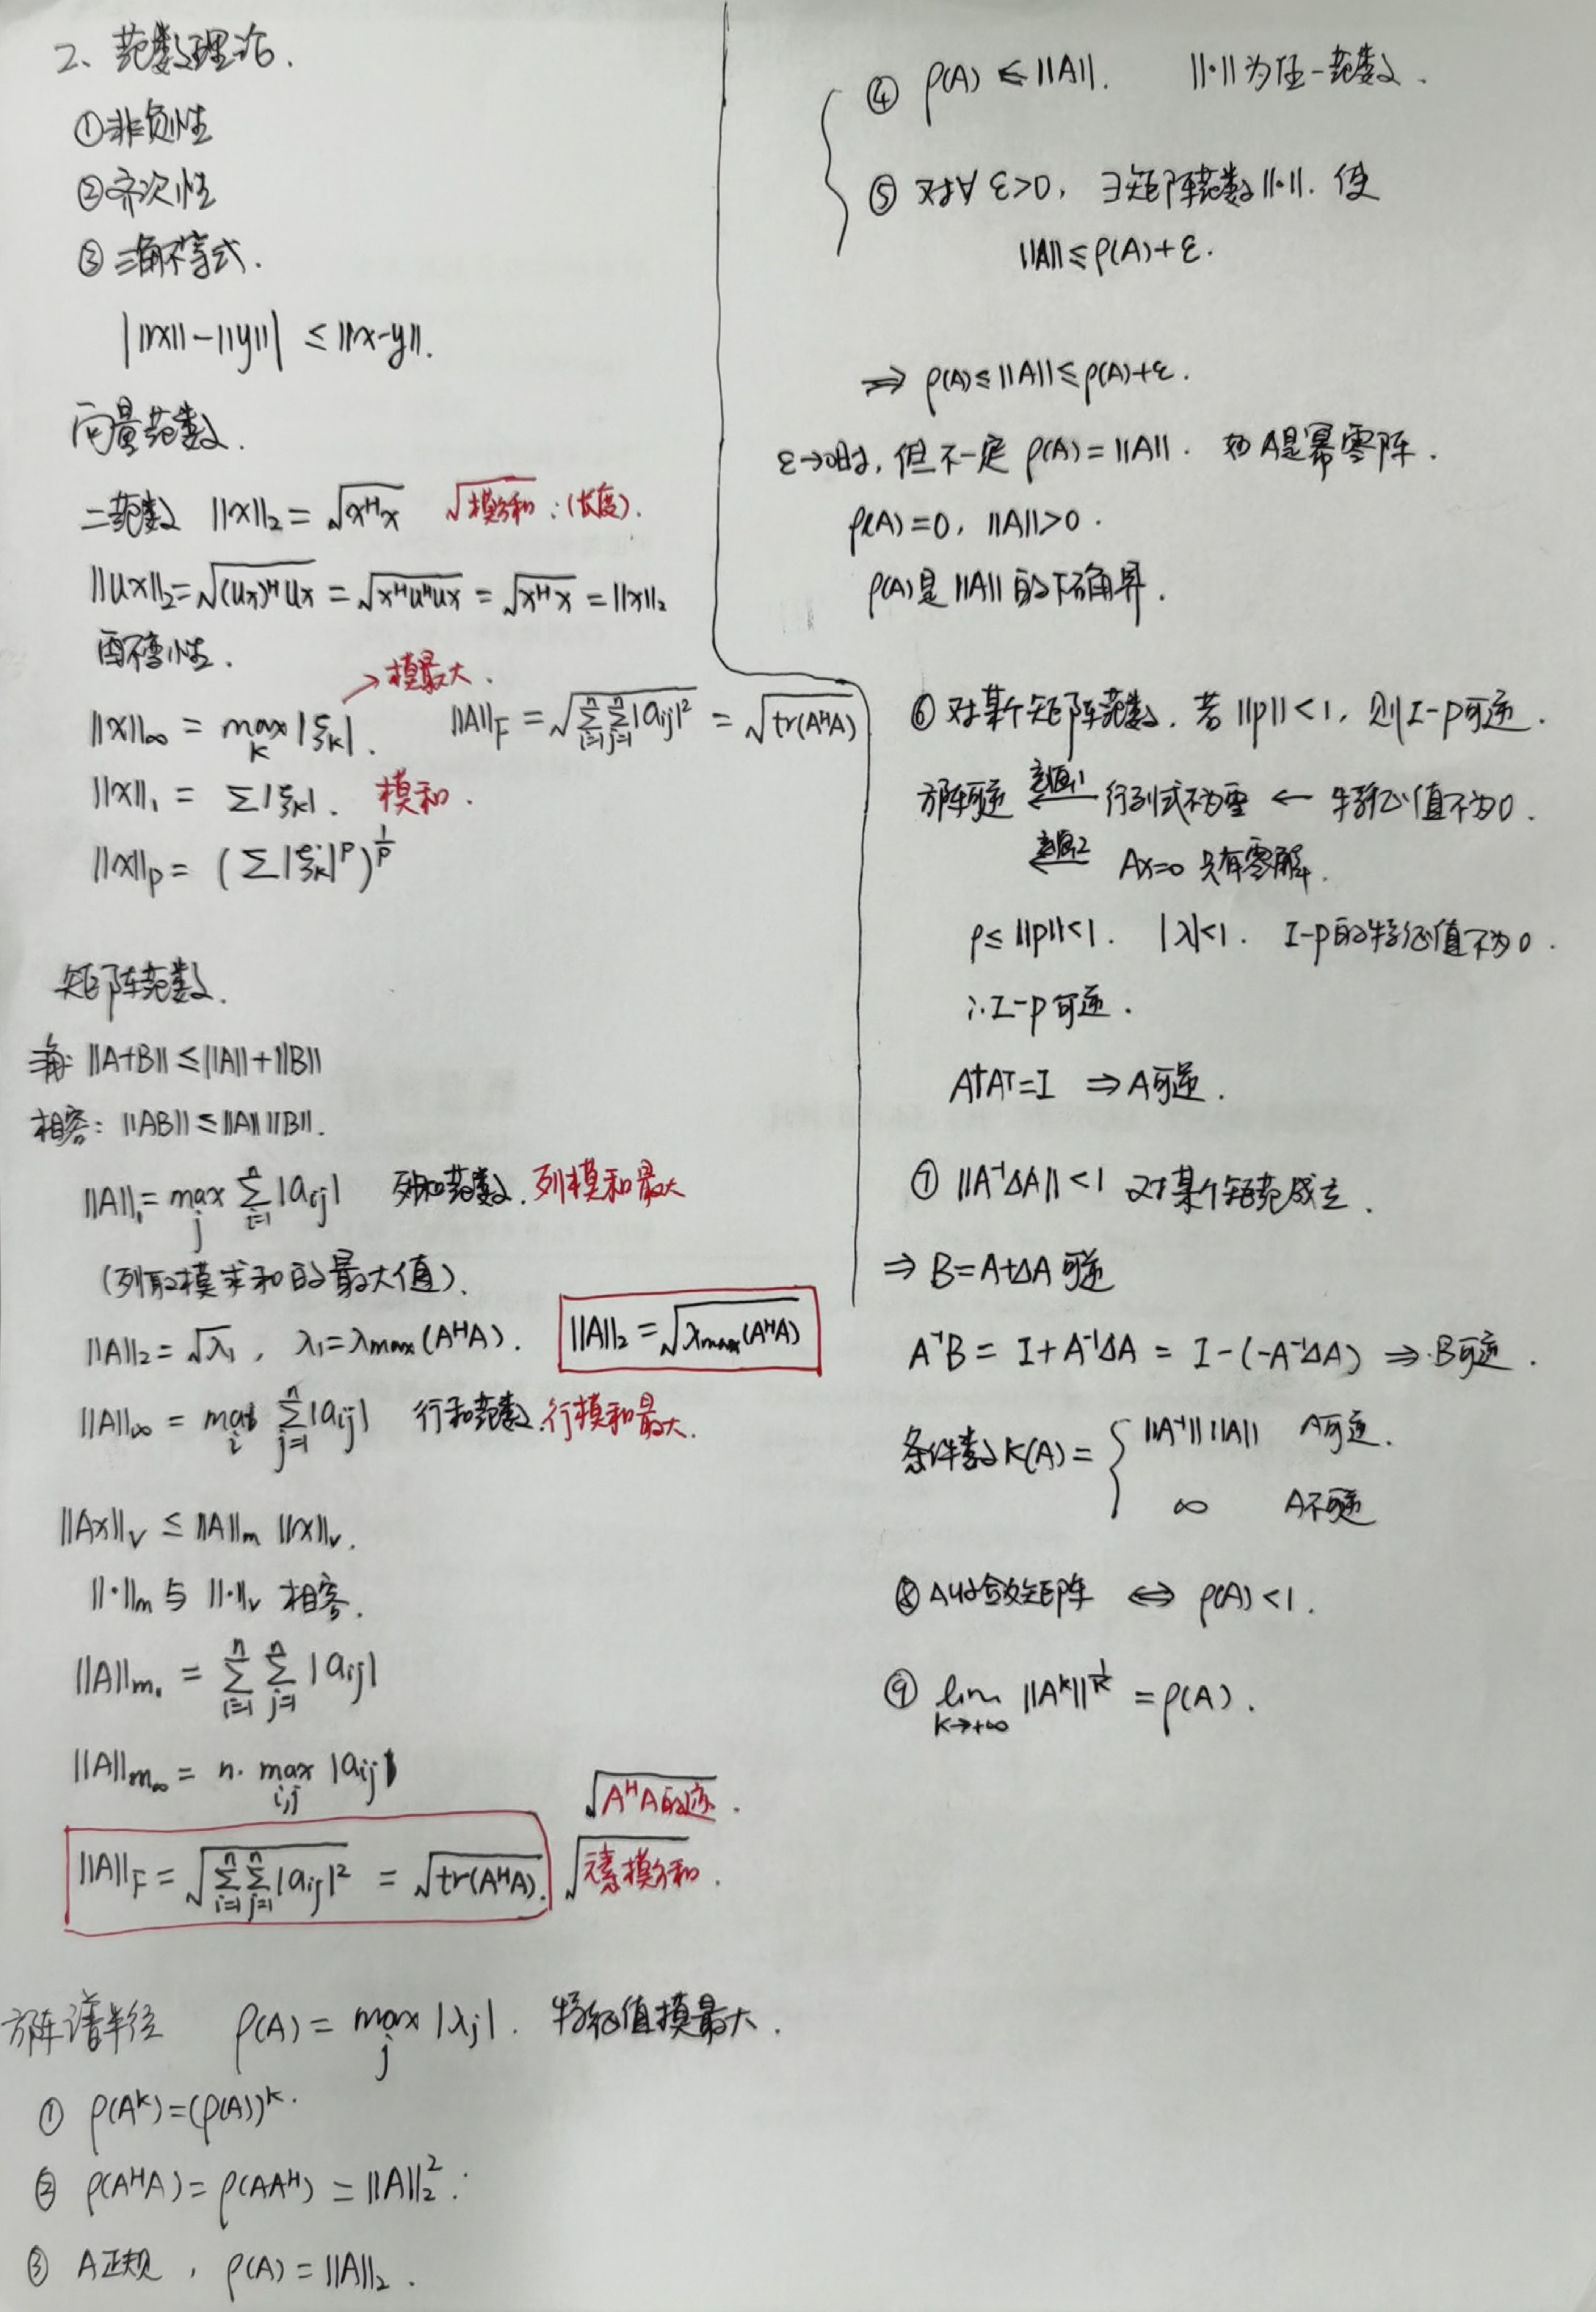 2、范数理论.
①非负性
②齐次性
③三角不等式.
| ||x|| - ||y|| | ≤ ||x-y||.
向量范数.
二范数 ||x||₂ = √(xᴴx) √模方和 :(长度).
||Ux||₂ = √((Ux)ᴴUx) = √(xᴴUᴴUx) = √(xᴴx) = ||x||₂
酉不变性.
→模最大.
||x||∞ = max_k |ξk|. ||A||F = √(∑_{i=1}^n ∑_{j=1}^n |aij|²) = √(tr(AᴴA))
||x||₁ = ∑|ξk|. 模和.
||x||p = (∑|ξk|^p)^{1/p}
矩阵范数.
三角: ||A+B|| ≤ ||A|| + ||B||
相容: ||AB|| ≤ ||A|| ||B||.
||A||₁ = max_j ∑_{i=1}^n |aij| 列和范数. 列模和最大
(列取模求和的最大值).
||A||₂ = √λ₁, λ₁ = λmax(AᴴA). ||A||₂ = √(λmax(AᴴA))
||A||∞ = max_i ∑_{j=1}^n |aij| 行和范数. 行模和最大.
||Ax||v ≤ ||A||m ||x||v.
||·||m 与 ||·||v 相容.
||A||m₁ = ∑_{i=1}^n ∑_{j=1}^n |aij|
||A||m∞ = n· max_{i,j} |aij|
√AᴴA的迹.
||A||F = √(∑_{i=1}^n ∑_{j=1}^n |aij|²) = √(tr(AᴴA)). √元素模方和.
方阵谱半径 ρ(A) = max_j |λj|. 特征值模最大.
① ρ(Aᵏ) = (ρ(A))ᵏ.
② ρ(AᴴA) = ρ(AAᴴ) = ||A||₂².
③ A正规, ρ(A) = ||A||₂.
④ ρ(A) ≤ ||A||. ||·||为任一范数.
⑤ 对∀ ε>0, ∃矩阵范数||·||. 使
||A|| ≤ ρ(A)+ε.
⇒ ρ(A) ≤ ||A|| ≤ ρ(A)+ε.
ε→0时, 但不一定 ρ(A) = ||A||. 如A是幂零阵.
ρ(A)=0, ||A||>0.
ρ(A)是||A||的下确界.
⑥ 对某个矩阵范数. 若||P||<1, 则I-P可逆.
方阵可逆 ←思路1 行列式不为零 ← 特征值不为0.
←思路2 Ax=0 只有零解.
ρ ≤ ||P|| < 1. |λ|<1. I-P的特征值不为0.
∴I-P可逆.
⇒ A可逆.
⑦ ||A⁻¹ΔA|| < 1 对某个矩范成立.
⇒ B=A+ΔA可逆
A⁻¹B = I+A⁻¹ΔA = I-(-A⁻¹ΔA) ⇒ B可逆.
条件数K(A) = { ||A⁻¹|| ||A|| A可逆.
∞ A不可逆
⑧ A收敛矩阵 ⇔ ρ(A)<1.
⑨ lim_{k→+∞} ||Aᵏ||^{1/k} = ρ(A).